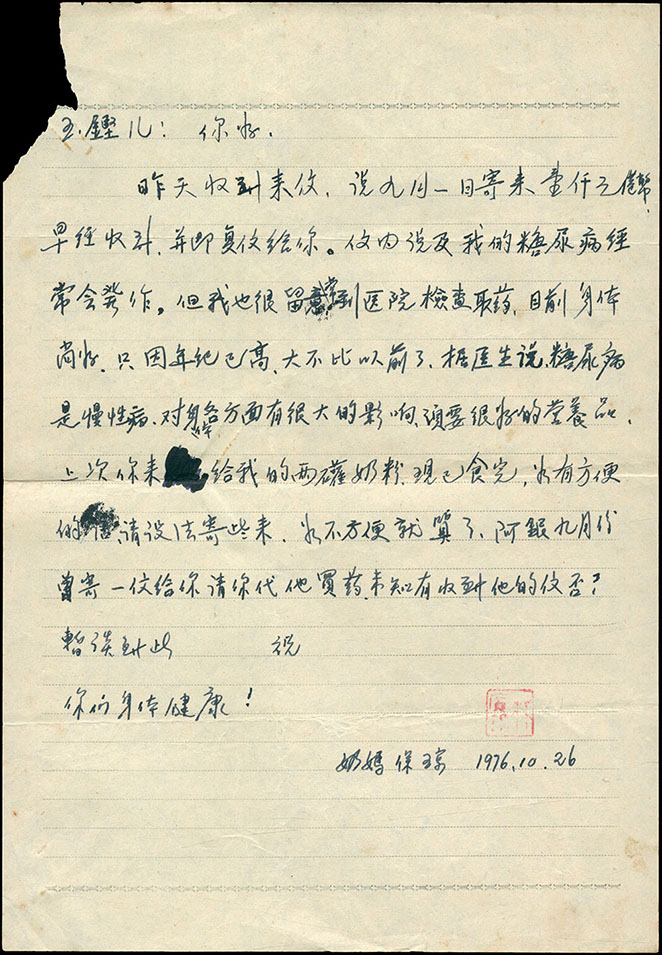 玉鏗儿：你好．
昨天收到来仪，说九月一日寄来壹仟元港幣，
早经收到，并即复仪给你。仪内说及我的糖尿病经
常会発作。但我也很留意常到医院檢查取药，目前身体
尚好，只因年纪已高，大不比以前了，据医生说，糖尿病
是慢性病，对身体各方面有很大的影响，須要很好的营養品，
上次你来给我的两罐奶粉，现已食完，如有方便
的请设法寄些来，如不方便就算了，阿銀九月份
曾寄一仪给你请你代他買药，未知有收到他的仪否？
暫谈到此 祝
你们身体健康！
奶媽 保琼 1976.10.26